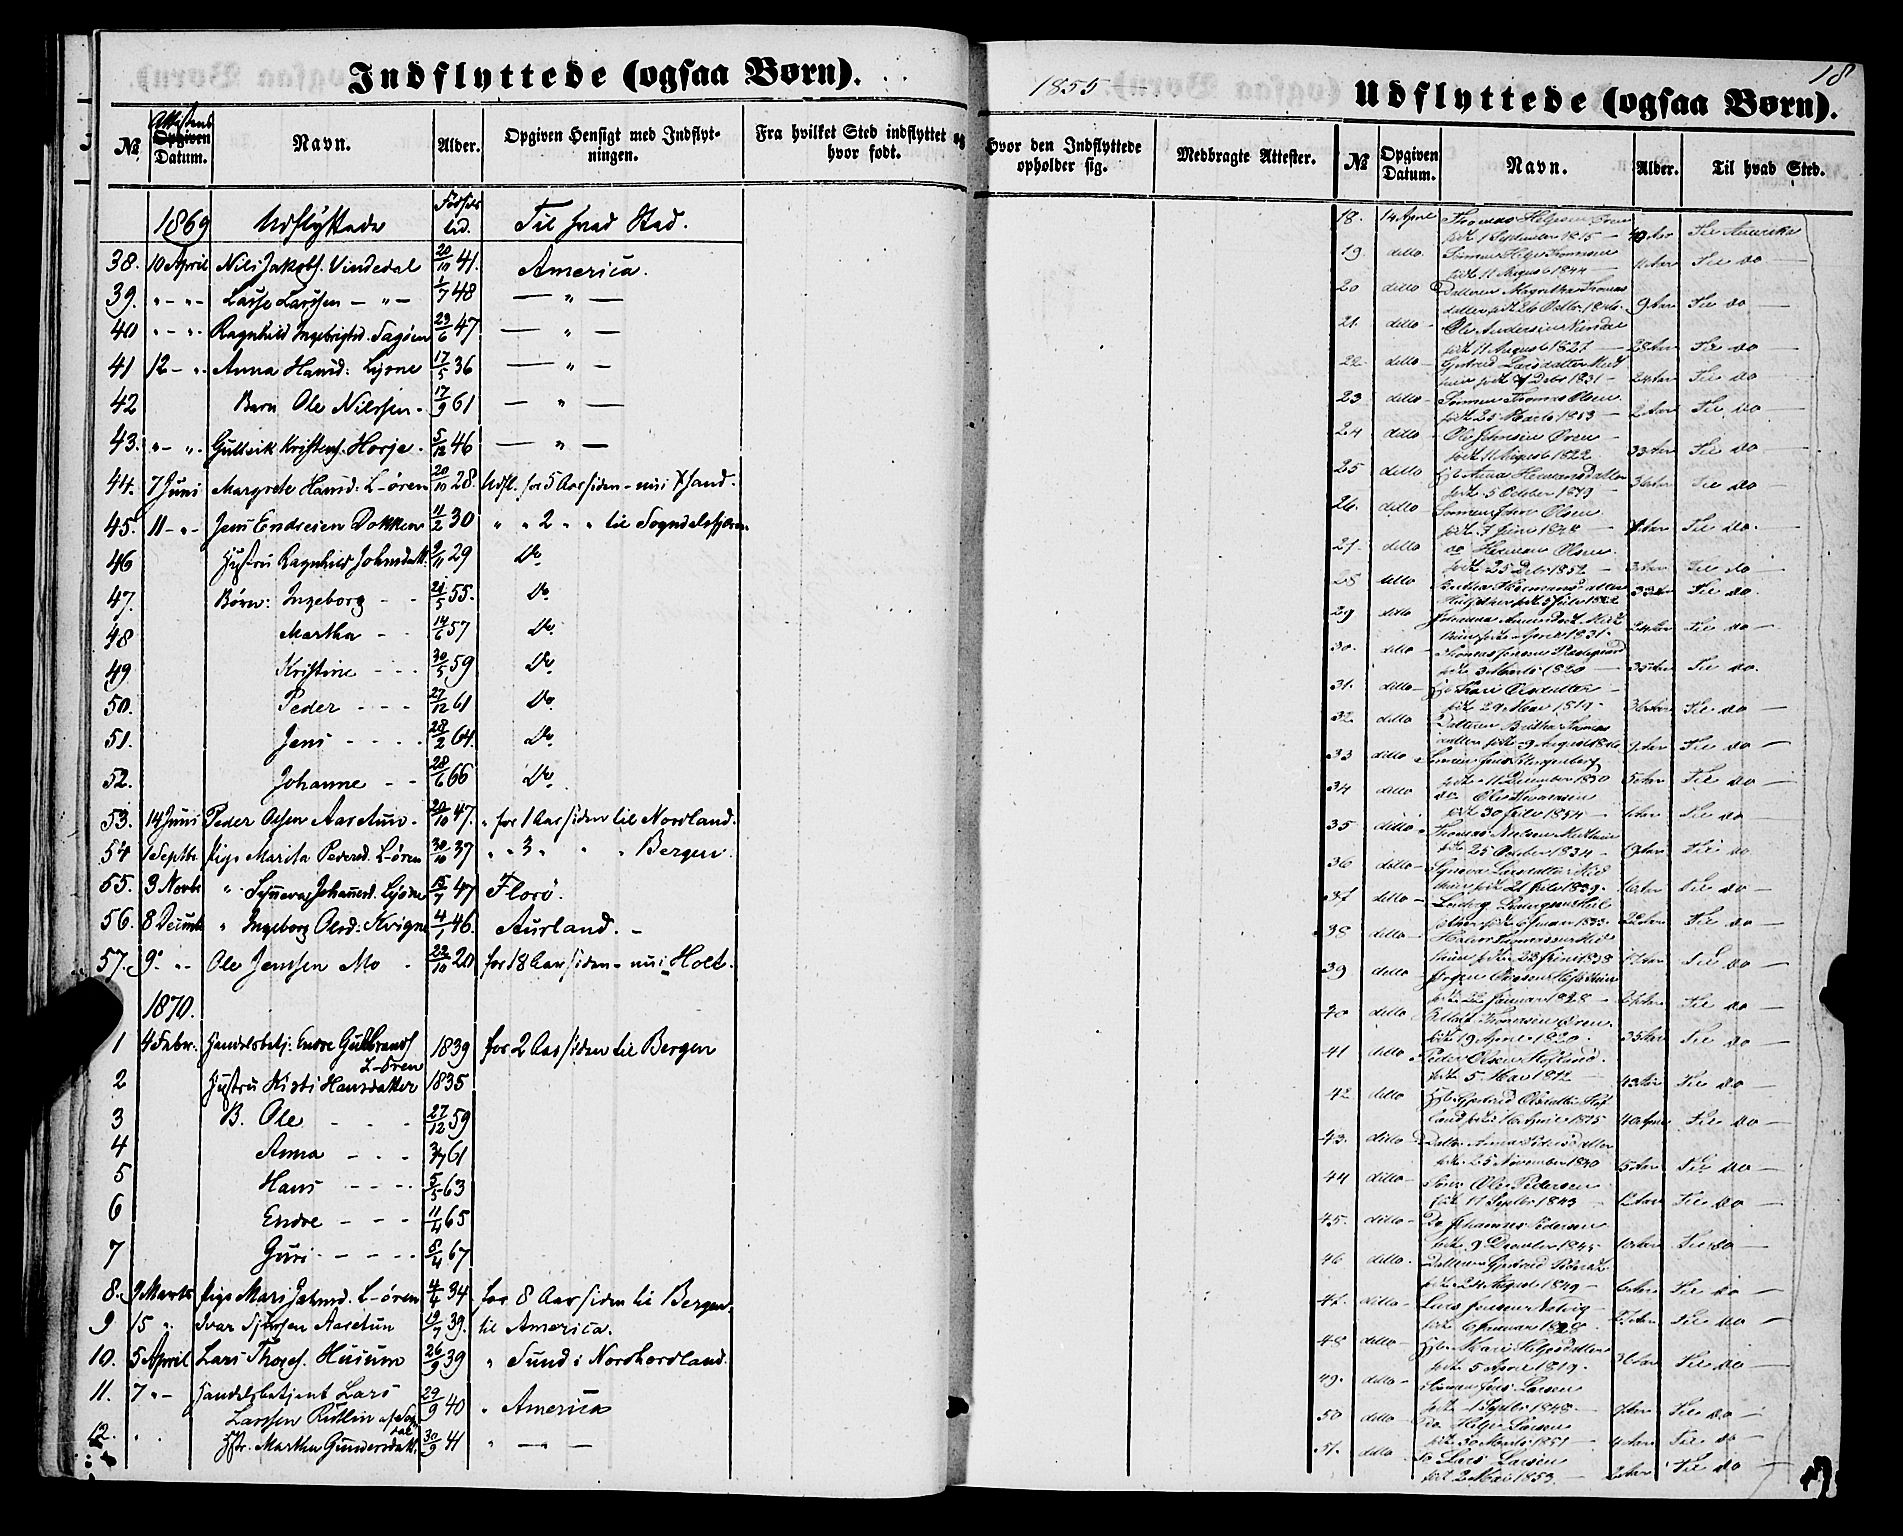 Indflyttede (ogsaa Børn).
№ Attestens Opgiven Datum. Navn. Alder. Opgiven Hensigt med Indflytningen. Fra hvilket Sted indflyttet og hvor født.
1869 Udflyttede Fødselstid. Til hvad Sted.
38. 10 April Nils Jakobs. Vindedal 20/10 41. America.
39. " - " - Lasse Larssen - " - 1/7 48 — " —
40 " - " - Ragnhild Ingebrigtsd. 23/6 47 — " —
41 12 - " Anna Hansd: Lysne 17/5 36 — " —
42 Barn Ole Nilssen - 17/9 61 — " —
43. " - " - Gulleik Kristens. Horje - 5/12 46 — " —
44. 7 Juni Margrete Hansd: L-øren 20/10 28. Udfl. for 5 Aar siden - nu i
45. 11 - " - Jens Endresen Dokken 11/2 30 " " 2 " " til Sogndalsfjøren
46 Hustru Ragnhild Johnsdatt. 9/11 29 Do
47. Børn: Ingeborg - - 24/5 55. Do
48 Martha - - 14/6 57 Do
49 Kristine - - - 30/5 59 Do
50. Peder - - - 27/12 61 Do
51. Jens - - - - 28/2 64. Do
52. Johanne - - 28/6 66 Do
53. 14 Juni Peder Olsen Aaretun - 20/10 47. " for 1 Aar siden til Nordland.
54 1 Septbr. Pige Marita Pedersd. L-øren 30/10 37 " " 3 " " " Bergen.
55. 3 Novbr " Synneva Johannesd. Lysne 15/7 47 Florø.
56. 8 Decemb. " Ingeborg Olesd: Kvigne 4/1 46. Aurland. -
57. 9 " - Ole Jenssen Mo - 22/10 20 for 18 Aar siden - nu i Holt.
1870.
1 4 Febr. Handelsbetj: Endre Gulbrands. L-øren 1839 for 2 Aar siden til Bergen
2 Hustru Kisti Hansdatter 1835
3 B. Ole - - - 27/12 59
4 Anna - - - 61
5 Hans - - - 5/5 63
6 Endre - - - 11/4 65
7 Guri - - - - 8/4 67
8. 9 Marts Pige Mari Johnsd. L-øren 4/4 34 for 8 Aar siden til Bergen.
9 15 " Ivar Aaretun 19/7 39. til America.
10. 5 April Lars Thoges. Husum 26/9 39 " Sund i Nordhordland.
11. 7 " - Handelsbetjent Lars
Larssen 29/9 40 " America
12. " Hstr. Martha Gundersdatt. 30/9 41 " — " —
1855 -
18
Hvor den Indflyttede opholder sig. Medbragte Attester.
Udflyttede (ogsaa Børn).
№ Opgiven Datum. Navn. Alder. Til hvad Sted.
18. 14 April Thomas Helgesen Øren
født 1 September 1815 - 40 Aar Til Amerika
19. ditto Sønnen Helge Thomsen
født 11 August 1844 - 11 Aar Til do -
20 ditto Datteren Magretha Thomas
datter født 26 Octbr. 1846. 9 Aar Til do -
21. ditto - Ole Andersen
født 11 August 1827 - 28 Aar Til do -
22 ditto - Gjertrud Larsdatter
født Debr 1831 - 24 Aar Til do -
23 ditto - Sønnen Thomas Olsen
født 25 Marts 1853 - 2 Aar Til do -
24 ditto - Ole Johnsen Øren -
født 11 August 1822. 33 Aar Til do -
25 ditto Hb Anna Hermansdatter
født 5 October 1819 - 36 Aar Til do -
26. ditto Sønnen John Olsen
født 3 Juni 1848 - 7 Aar Til do.
27. ditto do Herman Olsen
født 25 Debr 1852 - 3 Aar Til do -
28 ditto Britha Hermansdatter
født 5 Juli 1822 33 Aar Til do.
29 ditto Johanna
født April 1831 - 24 Aar Til do -
30. ditto - Thomas Jensen
født 3 Marts 1820 - 35 Aar Til do -
31. ditto - Hb Kari Olsdatter -
født 29 Mai 1819 - 36 Aar Til do -
32 ditto Datteren Britha Thomas
datter født 9 August 1846 9 Aar Til do -
33 ditto Sønnen Jens
født 11 December 1850 5 Aar Til do -
34 ditto do Ole Thomassen
født 30 Juli 1854 - 1 Aar Til do
35 ditto Thomas
født 25 October 1834 - Til do
36 ditto - Synneva Larsdatter
født 21 Juli 1839 - 16 Aar Til do -
37 ditto -
født 6 Januar 1833 - 22 Aar Til do -
38 ditto - Thomassen
født 23 Juni 1838 17 Aar Til do -
39 ditto Jørgen
født Januar 1828 - 27 Aar Til do -
40 ditto Thomesen Øren.
født 19 April 1820 - 35 Aar Til do -
41 ditto Peder Olsen Hofland.
født 5 Mai 1812 - 43 Aar Til do -
42 ditto Hb. Gjertrud Olsdatter Hof
land født 16 April 1815 40 Aar Til do -
43. ditto Datter Anna Pedersdatter
født 25 November 1850 5 Aar Til do -
44 ditto - Søn Ole Pedersen
født 17 Septbr 1843 12 Aar Til do -
45. ditto - Do Johannes Pedersen
født 9 December 1845 10 Aar Til do -
46 ditto. Datteren Gjertrud
født 24 August 1849 - 6 Aar Til do -
47. ditto - Lars
født 6 Januar 1828. Til do -
48 ditto - Hb. Mari Helgesdatter
født 5 April 1819. 36 Aar Til do -
49. ditto - Sønnen Jens Larsen
født 1 Septbr 1848 - 7 Aar Til do -
50 ditto - Do Helge Larsen
født 30 Marts 1851 - 4 Aar Til do -
51. ditto - Do Lars Larsen
født 2 Mai 1853 - 2 Aar Til do -